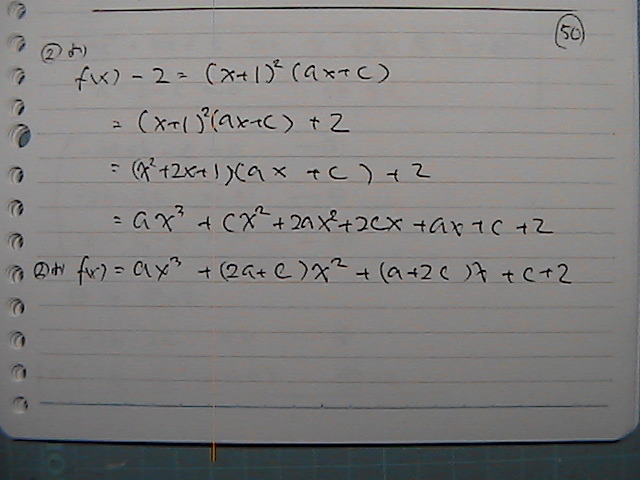 50
②より
f(x) - 2 = (x+1)²(ax+c)
= (x+1)²(ax+c) + 2
= (x²+2x+1)(ax + c) + 2
= ax³ + cx² + 2ax² + 2cx + ax + c + 2
②より f(x) = ax³ + (2a+c)x² + (a+2c)x + c+2